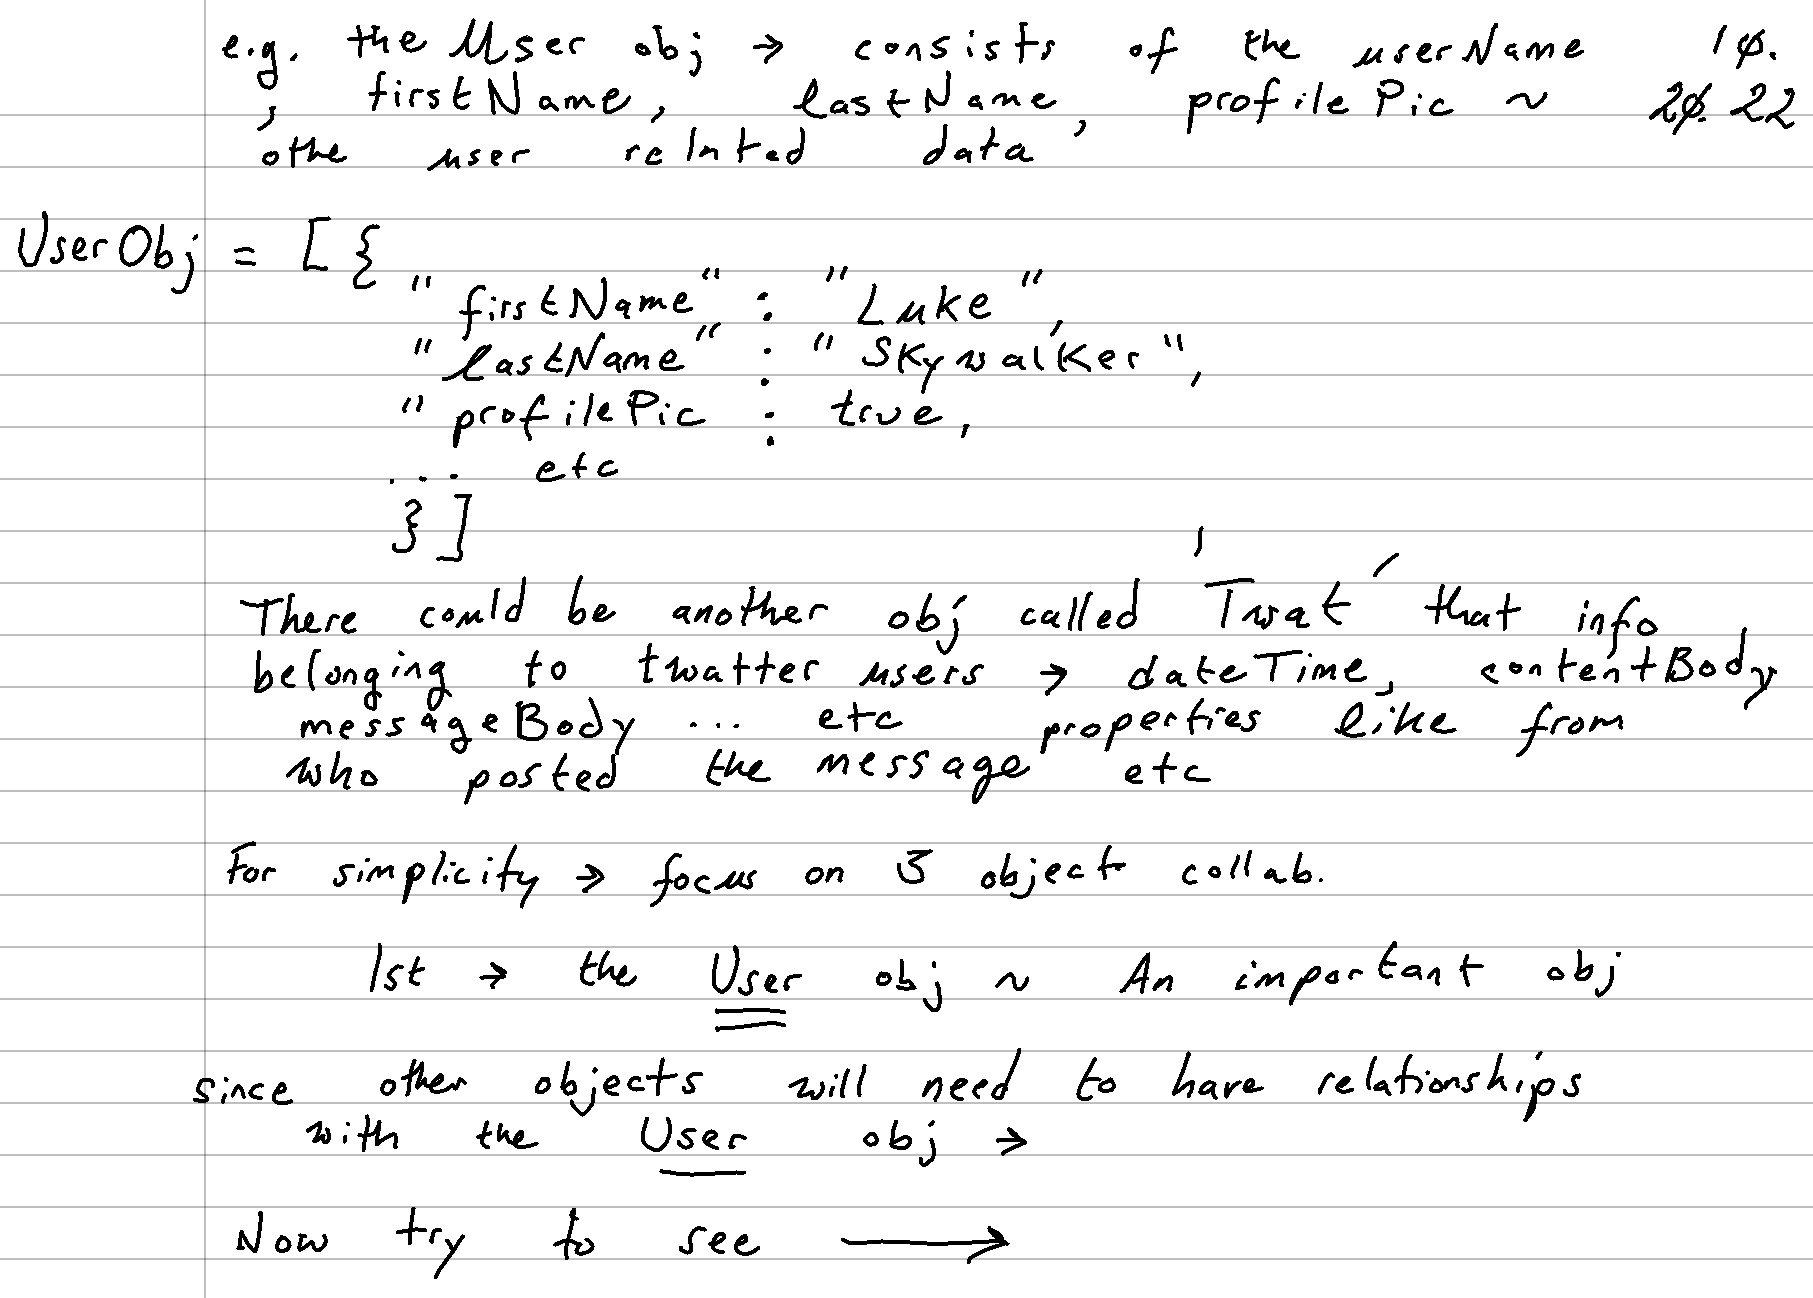 e.g. the User obj → consists of the userName 10.
, firstName, lastName, profilePic ~ 20.22
othe user related data
UserObj = [ {
"firstName" : "Luke",
"lastName" : "SkywalKer",
"profilePic : true,
... etc
} ]
There could be another obj called 'Twat' that info
belonging to twatter users → dateTime, contentBody
messageBody ... etc properties like from
who posted the message etc
For simplicity → focus on 3 object collab.
1st → the User obj ~ An important obj
since other objects will need to have relationships
with the User obj →
Now try to see →